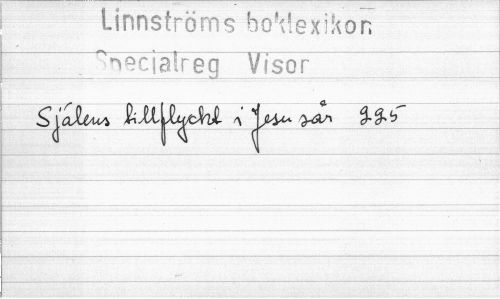 Linnströms boklexikon
Specialreg Visor
Själens tillflyckt i Jesu sår 225